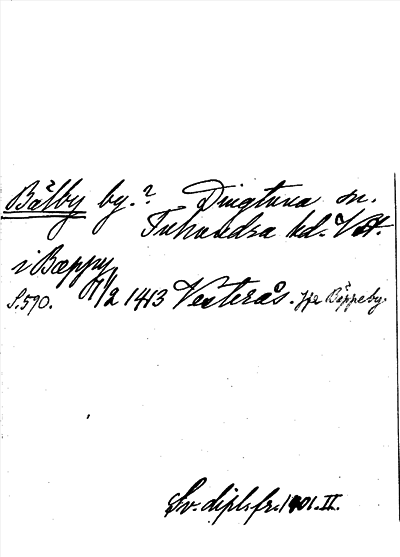 Bälby by.? Dingtuna sn.
Tuhundra hd. Vstl.
i Bæppy
S. 590. 11/2 1413 Vesterås. jfr Bäppeby.
Sv. dipl. fr. 1401. II.